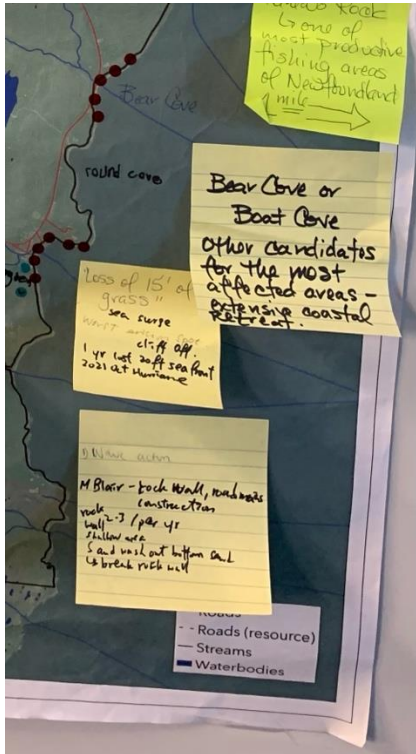 Rock
↳ one of
most productive
fishing areas
of Newfoundland
1 mile
Bear Cove
round cove
Bear Cove or
Boat Cove
other candidates
for the most
affected areas -
extensive coastal
retreat.
Loss of 15' of
grass"
sea surge
cliff off
1 yr lost 20ft sea front
2021 at Hurricane
Wave action
M Blair - rock wall,
construction
rock
wall 2-3 / per yr
shallow area
Sand wash out bottom sand
↳ break rock wall
Roads
-- Roads (resource)
— Streams
Waterbodies